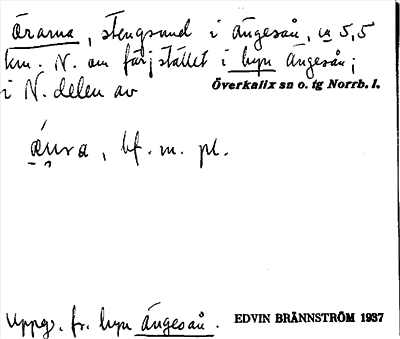 örarna, stengsund i ängesån, ca 5,5
km. N. om färjstället i byn Ängesån;
i N. delen av Överkalix sn o. tg Norrb. l.
bf. m. pl.
Uppg. fr. byn Ängesån. EDVIN BRÄNNSTRÖM 1937